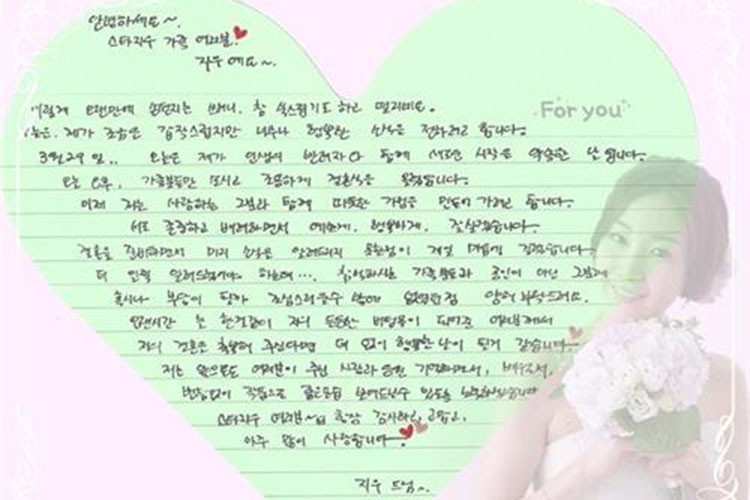 안녕하세요~.
스타지우 가족 여러분.
지우예요~.
이렇게 오랜만에 손편지를 쓰려니, 참 쑥스럽기도 하고 떨리네요.
For you
오늘은, 제가 조금은 갑작스럽지만 너무나 행복한 소식을 전하려고 합니다.
3월 29일.. 오늘은 제가 인생의 반려자와 함께 새로운 시작을 약속한 날입니다.
오늘 오후, 가족분들만 모시고 조용하게 결혼식을 올렸습니다.
이제 저는 사랑하는 그분과 함께 따뜻한 가정을 만들어가려고 합니다.
서로 존중하고 배려하면서 예쁘게, 행복하게, 잘 살겠습니다.
결혼을 준비하면서 미리 소식을 알려드리지 못한점이 제일 마음에 걸렸습니다.
더 일찍 알려드렸어야 하는데..., 참석하시는 가족분들과 공인이 아닌 그분께
혹시나 부담이 될까 조심스러울수 밖에 없었던점 양해 부탁드려요.
오랜시간 늘 한결같이 저의 든든한 버팀목이 되어준 여러분께서
저의 결혼을 축복해 주신다면 더 없이 행복한 날이 될거 같습니다.
저는 앞으로도 여러분이 주신 사랑과 응원 기억하면서, 배우로서,
변함없이 작품으로 좋은모습 보여드릴수 있도록 노력하겠습니다.
스타지우 여러분~, 항상 감사하고, 고맙고,
아주 많이 사랑합니다.
지우 드림~.